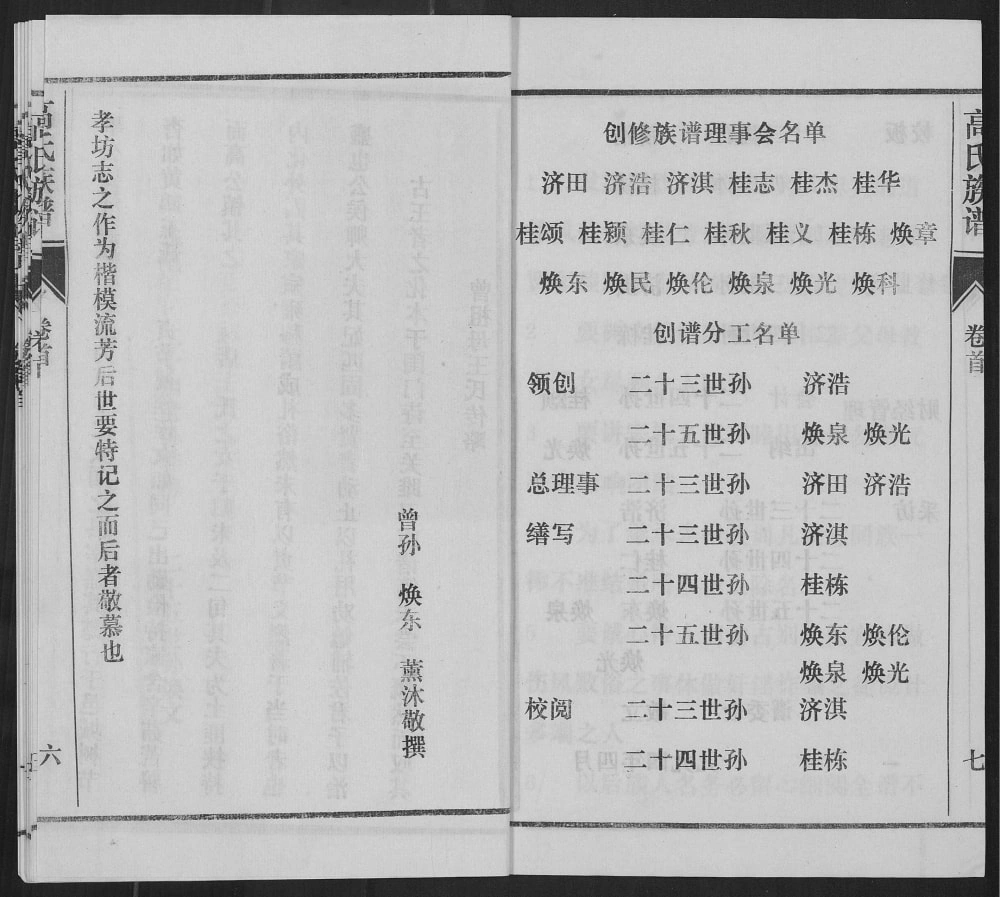 高氏族谱
卷首
六
孝坊志之作为楷模流芳后世要特记之而后者敬慕也
曾孙 焕东 薰沐敬撰
创修族谱理事会名单
济田 济浩 济淇 桂志 桂杰 桂华
桂颂 桂颖 桂仁 桂秋 桂义 桂栋 焕章
焕东 焕民 焕伦 焕泉 焕光 焕科
创谱分工名单
领创 二十三世孙 济浩
二十五世孙 焕泉 焕光
总理事 二十三世孙 济田 济浩
缮写 二十三世孙 济淇
二十四世孙 桂栋
二十五世孙 焕东 焕伦
焕泉 焕光
校阅 二十三世孙 济淇
二十四世孙 桂栋
高氏族谱
卷首
七